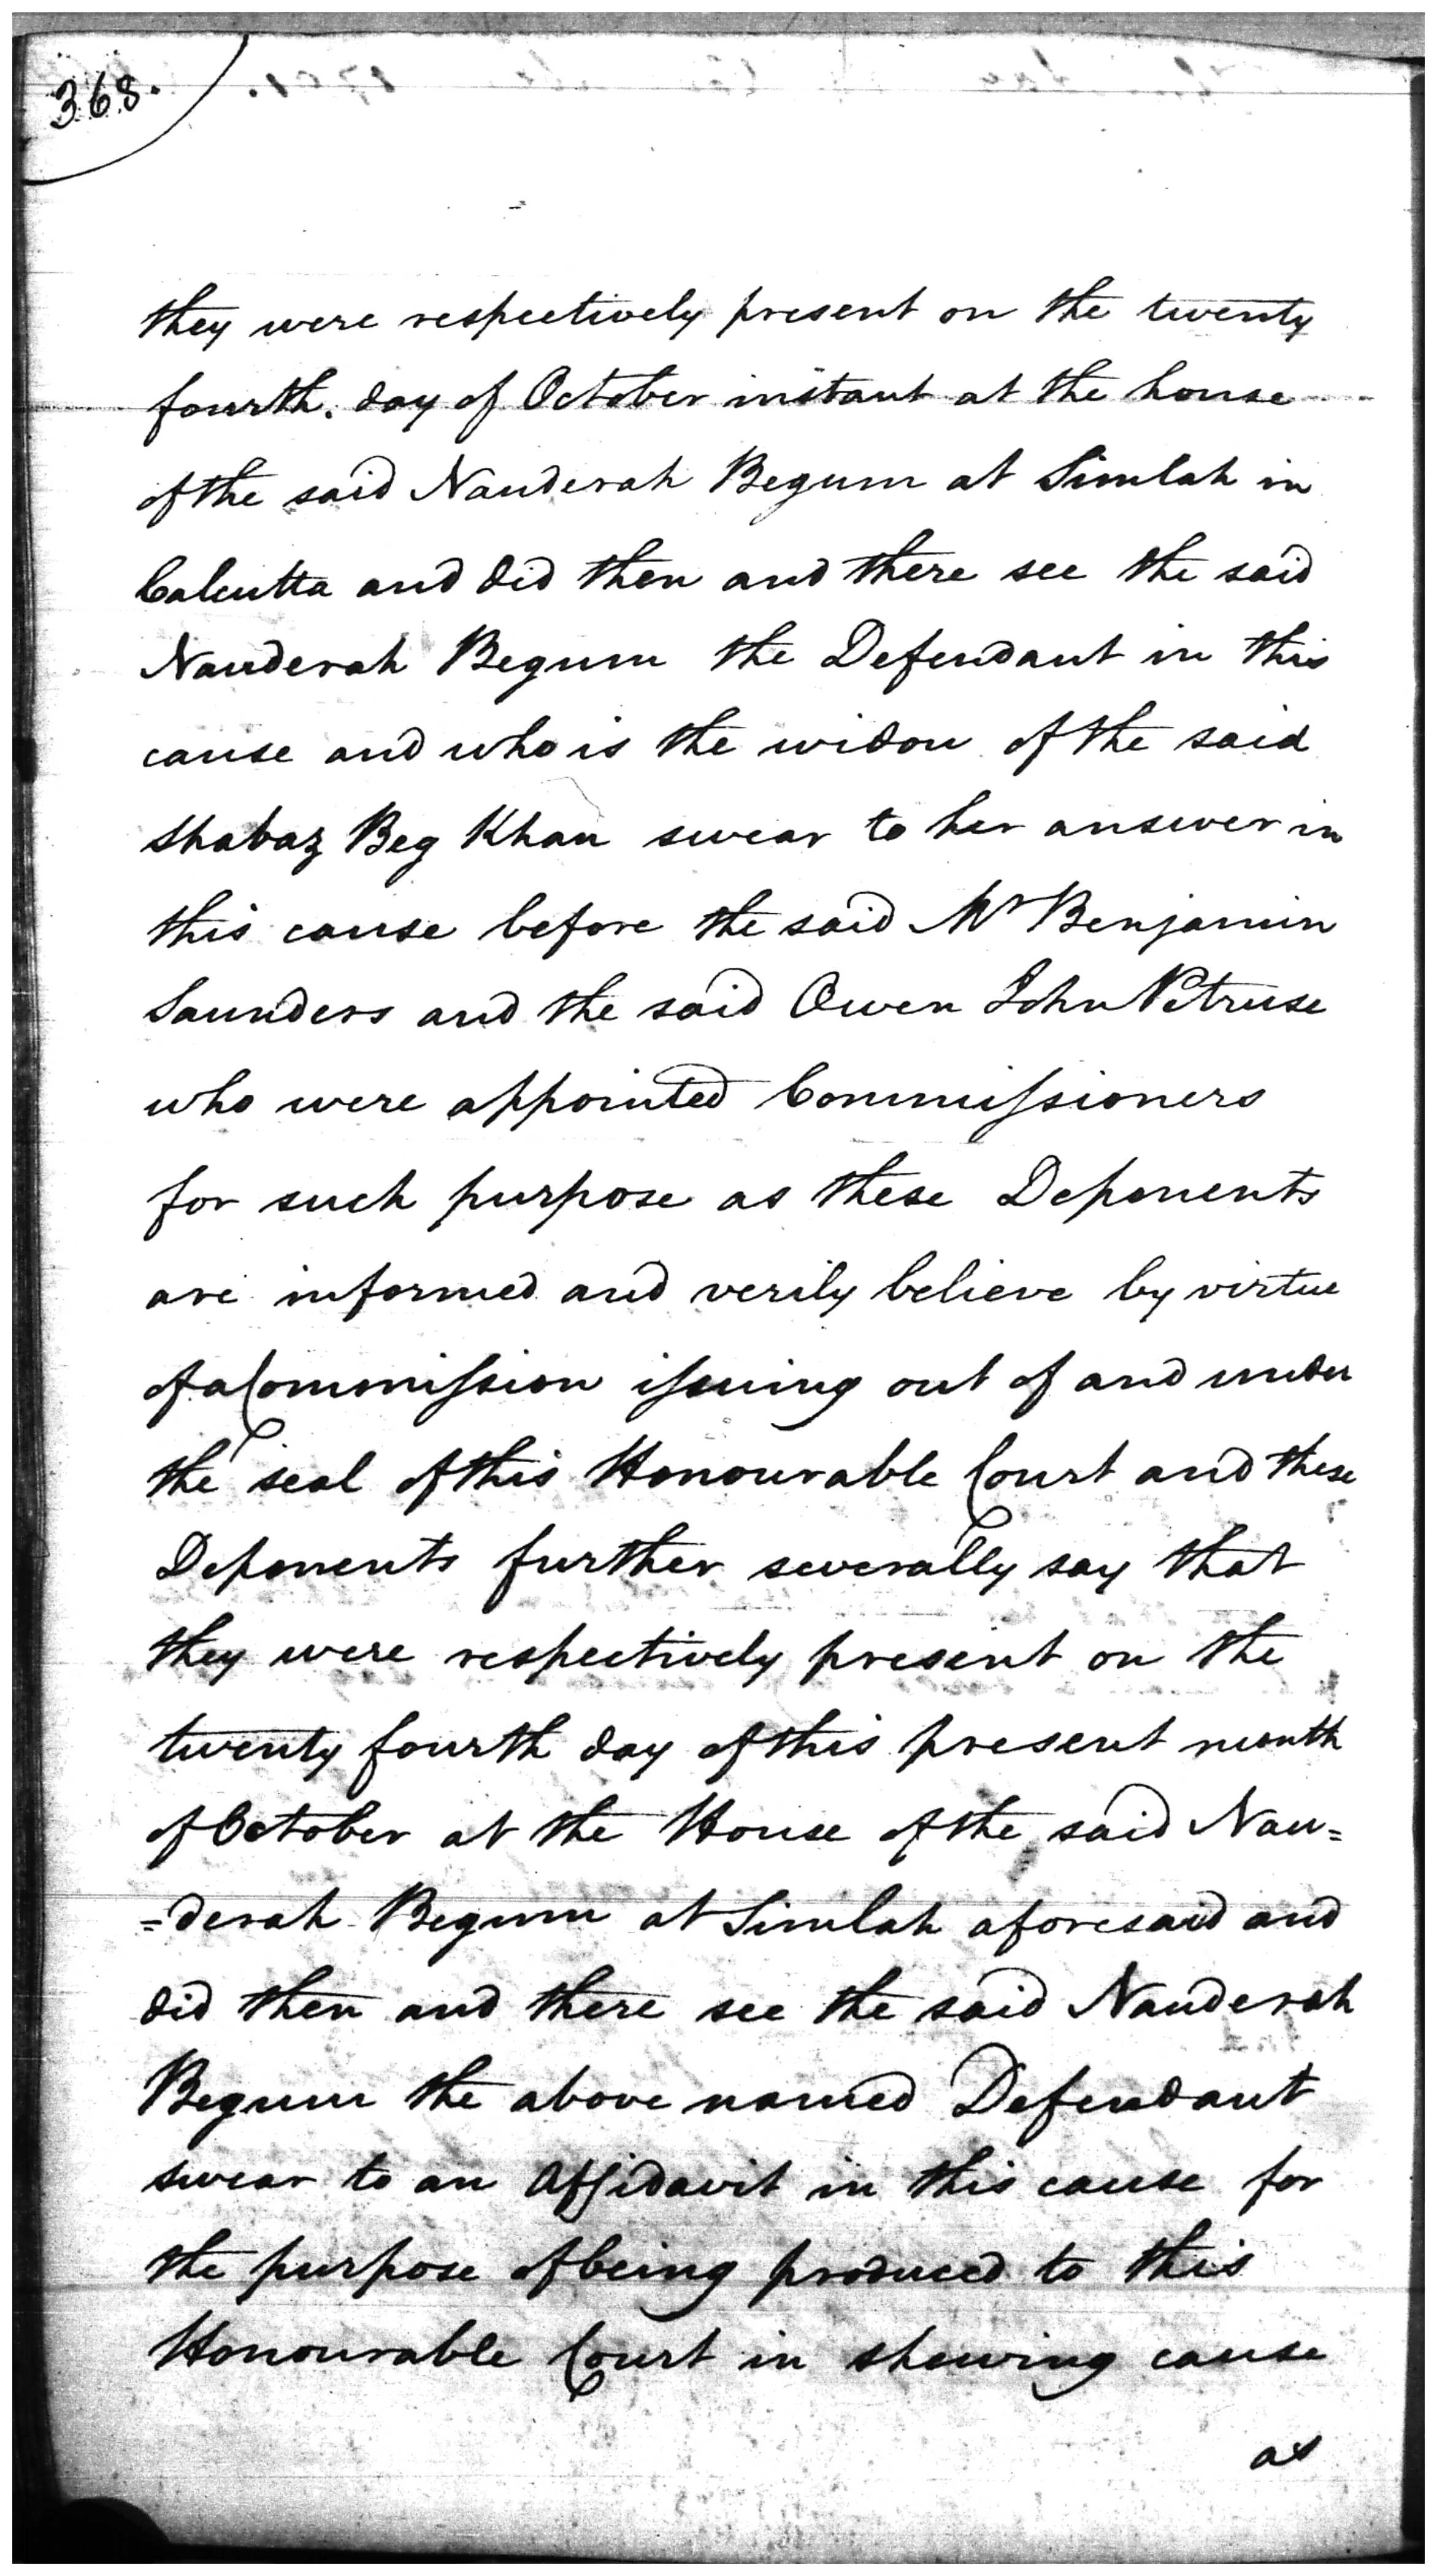 368.
they were respectively present on the twenty
fourth. day of October instant at the house
of the said Nauderah Begum at Simlah in
Calcutta and did then and there see the said
Nauderah Begum the Defendant in this
cause and who is the widow of the said
Shabaz Beg Khan swear to her answer in
this cause before the said Mr Benjamin
Saunders and the said Owen John Petruse
who were appointed Commissioners
for such purpose as these Deponents
are informed and verily believe by virtue
of a Commission issuing out of and under
the seal of this Honourable Court and these
Deponents further severally say that
they were respectively present on the
twenty fourth day of this present month
of October at the House of the said Nau=
=derah Begum at Simlah aforesaid and
did then and there see the said Nauderah
Begum the above named Defendant
swear to an Affidavit in this cause for
the purpose of being produced to this
Honourable Court in shewing cause
as